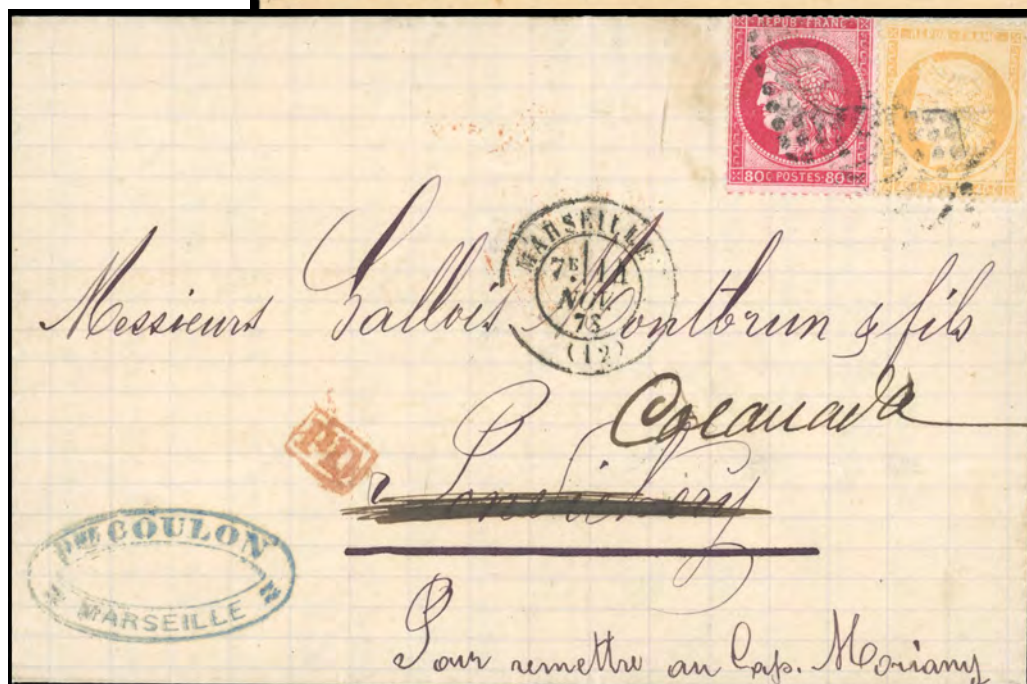 REPUB · FRANC ·
80 C · POSTES · 80
REPUB · FRANC ·
MARSEILLE
7E 11
NOV
(12)
Messieurs Gallois Montbrun & fils
Cocanada
Pondichéry
PD
COULON
MARSEILLE
Pour remettre au Cap. Moriany